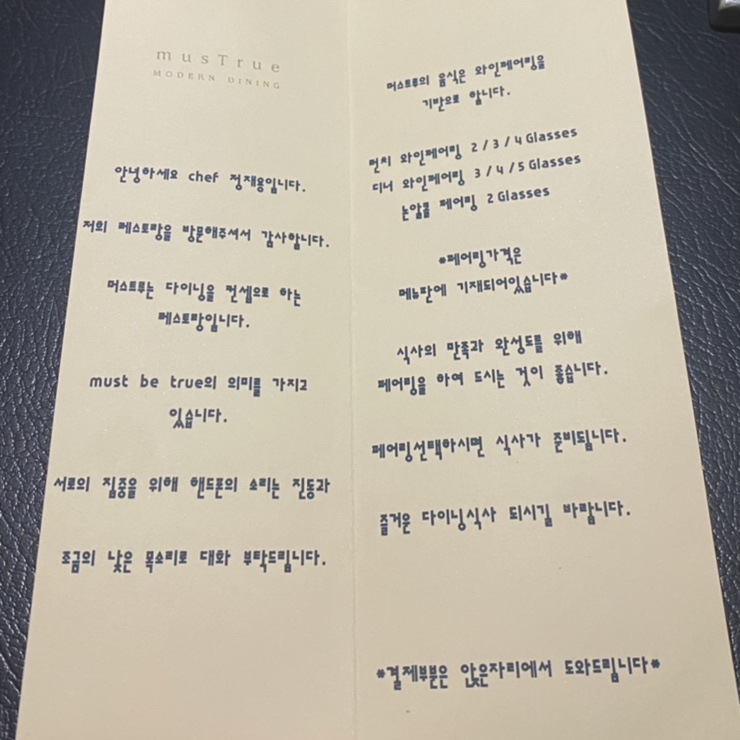 musTrue
MODERN DINING
안녕하세요 chef 정재용입니다.
저희 레스토랑을 방문해주셔서 감사합니다.
머스트루는 다이닝을 컨셉으로 하는
레스토랑입니다.
must be true의 의미를 가지고
있습니다.
서로의 집중을 위해 핸드폰의 소리는 진동과
조금의 낮은 목소리로 대화 부탁드립니다.
머스트루의 음식은 와인페어링을
기반으로 합니다.
런치 와인페어링 2 / 3 / 4 Glasses
디너 와인페어링 3 / 4 / 5 Glasses
논알콜 페어링 2 Glasses
*페어링가격은
메뉴판에 기재되어있습니다*
식사의 만족과 완성도를 위해
페어링을 하여 드시는 것이 좋습니다.
페어링선택하시면 식사가 준비됩니다.
즐거운 다이닝식사 되시길 바랍니다.
*결제부분은 앉은자리에서 도와드립니다*